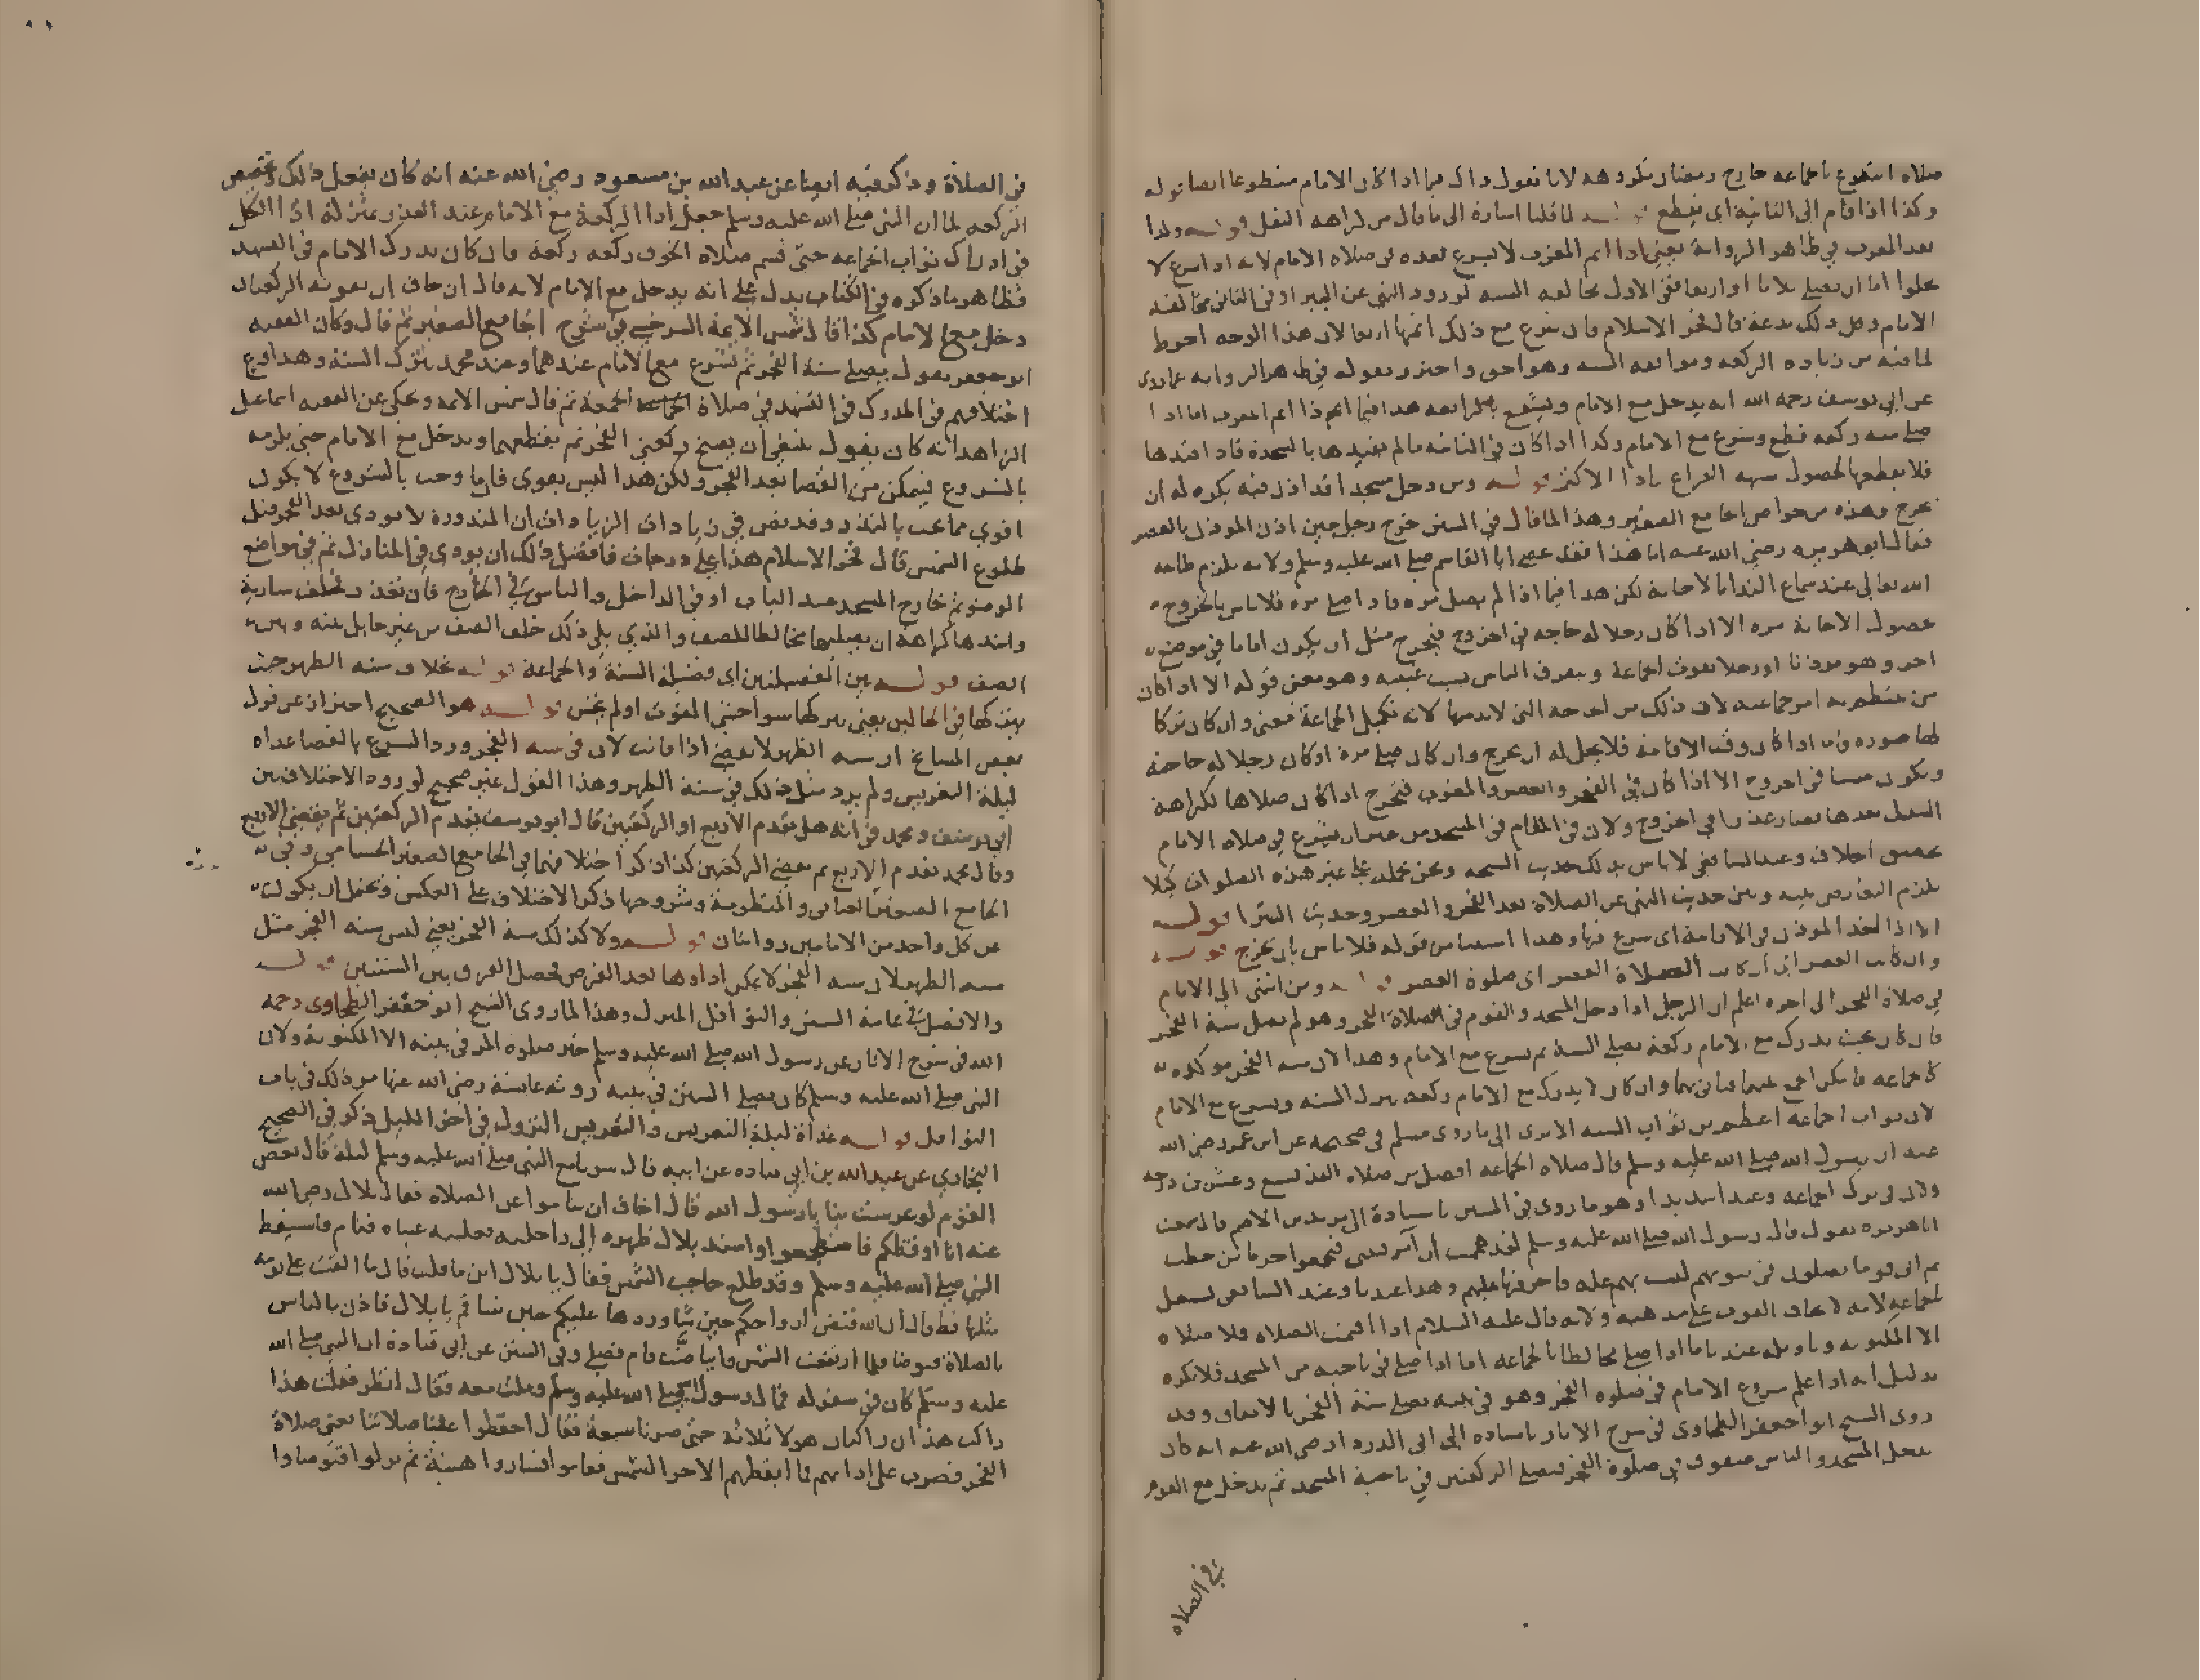 صلاه التطوع بالجماعة خارج رمضان مكروهه لانا نقول ذاك فيما اذا كان الامام متطوعا ايضا قوله
وكذا اذا قام الى الثانية اى يقطع قوله لما قلنا اشارة الى ما قال من كراهه النفل قوله وكذا
بعد المغرب في ظاهر الرواية يعني اذا اتم المغرب لا يشرع بعده في صلاه الامام لانه اذا شرع لا
يخلوا اما ان يصلي ثلاثا او اربعا ففي الاول مخالفه السنه لورود النهى عن البتيرا وفي الثاني مخالفه
الامام وكل ذلك بدعة قال فخر الاسلام فان شرع مع ذلك اتمها اربعا لان هذا الوجه احوط
لما فيه من زياده الركعه وموافقه السنه وهو احق واحترز بقوله في ظاهر الروايه عما روى
عن ابي يوسف رحمه الله انه يدخل مع الامام ويشفع بالرابعه هذا فيما اتم اذا اتم المغرب اما اذا
صلى منه ركعه قطع وشرع مع الامام وكذا اذا كان في الثانيه مالم يقيدها بالسجدة فاذا قيدها
فلا يقطعها لحصول شبهه الفراغ باداء الاكثر قوله ومن دخل مسجدا قد اذن فيه يكره له ان
يخرج وهذه من خواص الجامع الصغير وهذا لما قال في السنن خرج رجل حين اذن الموذن بالعصر
فقال ابو هريره رضي الله عنه اما هذا فقد عصى ابا القاسم صلى الله عليه وسلم ولانه يلزم طاعه
الله تعالى عند سماع الندا بالاجابة لكن هذا فيما اذا لم يصل مره فاذا صلى مره فلا باس بالخروج
لحصول الاجابة مره الا اذا كان رجلا له حاجه في الخروج فيخرج مثل ان يكون اماما في موضع
اخر وهو موذنا او رجلا يفوت الجماعة ويتفرق الناس بسبب غيبته وهو معنى قوله الا اذا كان
من ينتظم به امر جماعه لان ذلك من الحاجه التى لا بد منها لانه تكميل الجماعة معنى وان كان تركا
لها صوره واما اذا كان وقت الاقامة فلا يحل له ان يخرج وان كان صلى مرة او كان رجلا له حاجة
ويكون مسيا في الخروج الا اذا كان في الفجر والعصر والمغرب فيخرج اذا كان صلاها لكراهة
النفل بعدها فصار عذرا في الخروج ولان في المقام في المسجد من غير ان يشرع في صلاه الامام
تحقيق الخلاف وعند الشافعي لا باس بذلك لحديث السبحه ونحن نحمله على غير هذه الصلوات كيلا
يلزم التعارض بينه وبين حديث النهي عن الصلاة بعد الفجر والعصر وحديث البتيرا قوله
الا اذا اخذ الموذن في الاقامة اى شرع فيها وهذا استثنا من قوله فلا باس بان يخرج قوله
وان كانت العصر اى ان كانت الصلاة العصر اى صلوة العصر قوله ومن انتهى الى الامام
في صلاة الفجر الى اخره اعلم ان الرجل اذا دخل المسجد والقوم في الصلاة الفجر وهو لم يصل سنة الفجر
فان كان بحيث يدرك مع الامام ركعة يصلي السنة ثم يشرع مع الامام وهذا لان سنه الفجر موكده
كالجماعه فامكن الجمع بينهما فياتي بهما وان كان لا يدرك مع الامام ركعه يترك السنه ويشرع مع الامام
لان ثواب الجماعه اعظم من ثواب السنه الا ترى الى ما روى مسلم في صحيحه عن ابن عمر رضي الله
عنه ان رسول الله صلى الله عليه وسلم قال صلاه الجماعه افضل من صلاه الفذ بسبع وعشرين درجه
ولان في ترك الجماعه وعيدا شديدا وهو ما روى في السنن باسناده الى يزيد بن الاصم قال سمعت
ابا هريره يقول قال رسول الله صلى الله عليه وسلم لقد هممت ان آمر فتيتي فيجمعوا حزما من حطب
ثم اتى قوما يصلون في بيوتهم ليست بهم علة فاحرقها عليهم وهذا عندنا وعند الشافعي يشتغل
لجماعه لانه لا يخاف الفوت على مذهبه ولانه قال عليه السلام اذا اقيمت الصلاه فلا صلاه
الا المكتوبه وتاويله عندنا ما اذا صلى مخالطا بالجماعه اما اذا صلى في ناحيه من المسجد فلا يكره
بدليل انه اذا علم شروع الامام في صلوه الفجر وهو في بيته يصلي سنة الفجر بالاتفاق وقد
روى الشيخ ابو جعفر الطحاوى في شرح الاثار باسناده الى ابي الدرداء رضي الله عنه انه كان
يدخل المسجد والناس صفوف في صلوة الفجر فيصلي الركعتين في ناحية المسجد ثم يدخل مع القوم
في الصلاه
في الصلاة وذكر فيه ايضا عن عبد الله بن مسعود رضي الله عنه انه كان يفعل ذلك وتخصيص
الركعه لما ان النبي صلى الله عليه وسلم جعل ادا الركعة مع الامام عند العذر بمنزلة ادا الكل
في ادراك ثواب الجماعه حتى قسم صلاه الخوف ركعه ركعة فان كان يدرك الامام في التشهد
فظاهر ما ذكره في الكتاب يدل على انه يدخل مع الامام لانه قال ان خاف ان تفوته الركعتان
دخل مع الامام كذا قال شمس الايمة السرخسي في شرح الجامع الصغير ثم قال وكان الفقيه
ابو جعفر يقول يصلي سنة الفجر ثم يشرع مع الامام عندهما وعند محمد يترك السنة وهذا فرع
اختلافهم في المدرك في التشهد في صلاة الجمعة ثم قال شمس الائمه وحكي عن الفقيه اسماعيل
الزاهد انه كان يقول ينبغي ان يفتتح ركعتي الفجر ثم يقطعهما ويدخل مع الامام حتى يلزمه
بالشروع فيتمكن من القضا بعد الفجر ولكن هذا ليس بقوى فان ما وجب بالشروع لا يكون
اقوى مما يجب بالنذر وقد نص في زيادات الزيادات ان المنذورة لا تودى بعد الفجر قبل
طلوع الشمس قال فخر الاسلام هذا على درجات فافضل ذلك ان يودى في المنازل ثم في مواضع
الوضوء ثم خارج المسجد عند الباب او في الداخل والناس في الخارج فان تعذر فخلف سارية
واشدها كراهة ان يصليها مخالطا للصف والذي يلي ذلك خلف الصف من غير حايل بينه وبين
الصف قوله بين الفضيلتين اى فضيلة السنة والجماعة قوله بخلاف سنه الظهر حيث
يتركها في الحالين يعني يتركها سوا خشي الفوت او لم يخش قوله هو الصحيح احترازا عن قول
بعض المشايخ ان سنه الظهر لا تقضى اذا فاتت لان في سنه الفجر ورد الشرع بالقضا غداه
ليلة التعريس ولم يرد مثل ذلك في سنة الظهر وهذا القول غير صحيح لورود الاختلاف بين
ابي يوسف ومحمد في انه هل يقدم الاربع او الركعتين قال ابو يوسف يقدم الركعتين ثم يقضي الاربع
وقال محمد يقدم الاربع ثم يقضي الركعتين كذا ذكر اختلافهما في الجامع الصغير الحسامي وفي
الجامع الصغير العتابي والمنظومة وشروحها ذكر الاختلاف على العكس ويحتمل ان يكون
عن كل واحد من الامامين روايتان قوله ولا كذلك سنة الفجر يعني ليس سنه الفجر مثل
سنه الظهر لان سنه الفجر لا يمكن اداوها بعد الفرض فحصل الفرق بين السنتين قوله
والافضل في عامة السنن والنوافل المنزل وهذا لما روى الشيخ ابو جعفر الطحاوى رحمه
الله في شرح الاثار عن رسول الله صلى الله عليه وسلم خير صلوه المرء في بيته الا المكتوبة ولان
النبي صلى الله عليه وسلم كان يصلي السنن في بيته روته عايشة رضي الله عنها مر ذلك في باب
النوافل قوله غداة ليلة التعريس والتعريس النزول في اخر الليل ذكر في الصحيح
البخاري عن عبد الله بن ابي قتاده عن ابيه قال سرنا مع النبي صلى الله عليه وسلم ليلة قال بعض
القوم لو عرست بنا يا رسول الله قال اخاف ان تناموا عن الصلاه فقال بلال رضي الله
عنه انا اوقظكم فاضطجعوا واسند بلال ظهره الى راحلته فغلبته عيناه فنام فاستيقظ
النبي صلى الله عليه وسلم وقد طلع حاجب الشمس فقال يا بلال اين ما قلت قال ما القيت علي نومه
مثلها قط قال ان الله قبض ارواحكم حين شا وردها عليكم حين شا قم يا بلال فاذن بالناس
بالصلاة فتوضا فلما ارتفعت الشمس وابياضت قام فصلى وفي السنن عن ابي قتادة ان النبي صلى الله
عليه وسلم كان في سفر له فمال رسول الله صلى الله عليه وسلم وملت معه فقال انظر فقلت هذا
راكب هذان راكبان هولا ثلاثه حتى صرنا سبعة فقال احفظوا علينا صلاتنا يعني صلاة
الفجر فضرب على اذانهم فما ايقظهم الا حر الشمس فقاموا فساروا هنية ثم نزلوا فتوضاوا